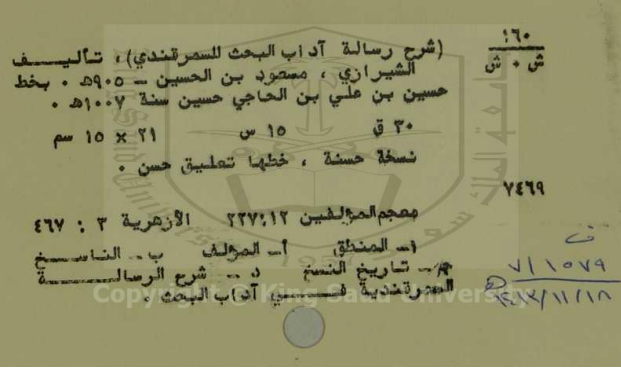 ١٦٠
ش ٠ ش
(شرح رسالة آداب البحث للسمرقندي)، تأليف
الشيرازي ، مسعود بن الحسين – ٩٠٥هـ ٠ بخط
حسين بن علي بن الحاجي حسين سنة ١٠٠٧هـ ٠
٣٠ ق ١٥ س ٢١ × ١٥ سم
نسخة حسنة ، خطها تعليق حسن ٠
٧٤٦٩
معجم المؤلفين ١٢:٢٢٧ الأزهرية ٣ : ٤٦٧
١- المنطق أ- المؤلف ب- الناسخ
ج- تاريخ النسخ د- شرح الرسالة
السمرقندية في آداب البحث ٠
ف
١٥٧٩ / ٧
١٤١٣/١١/١٨ هـ
Copyright © King Saud University